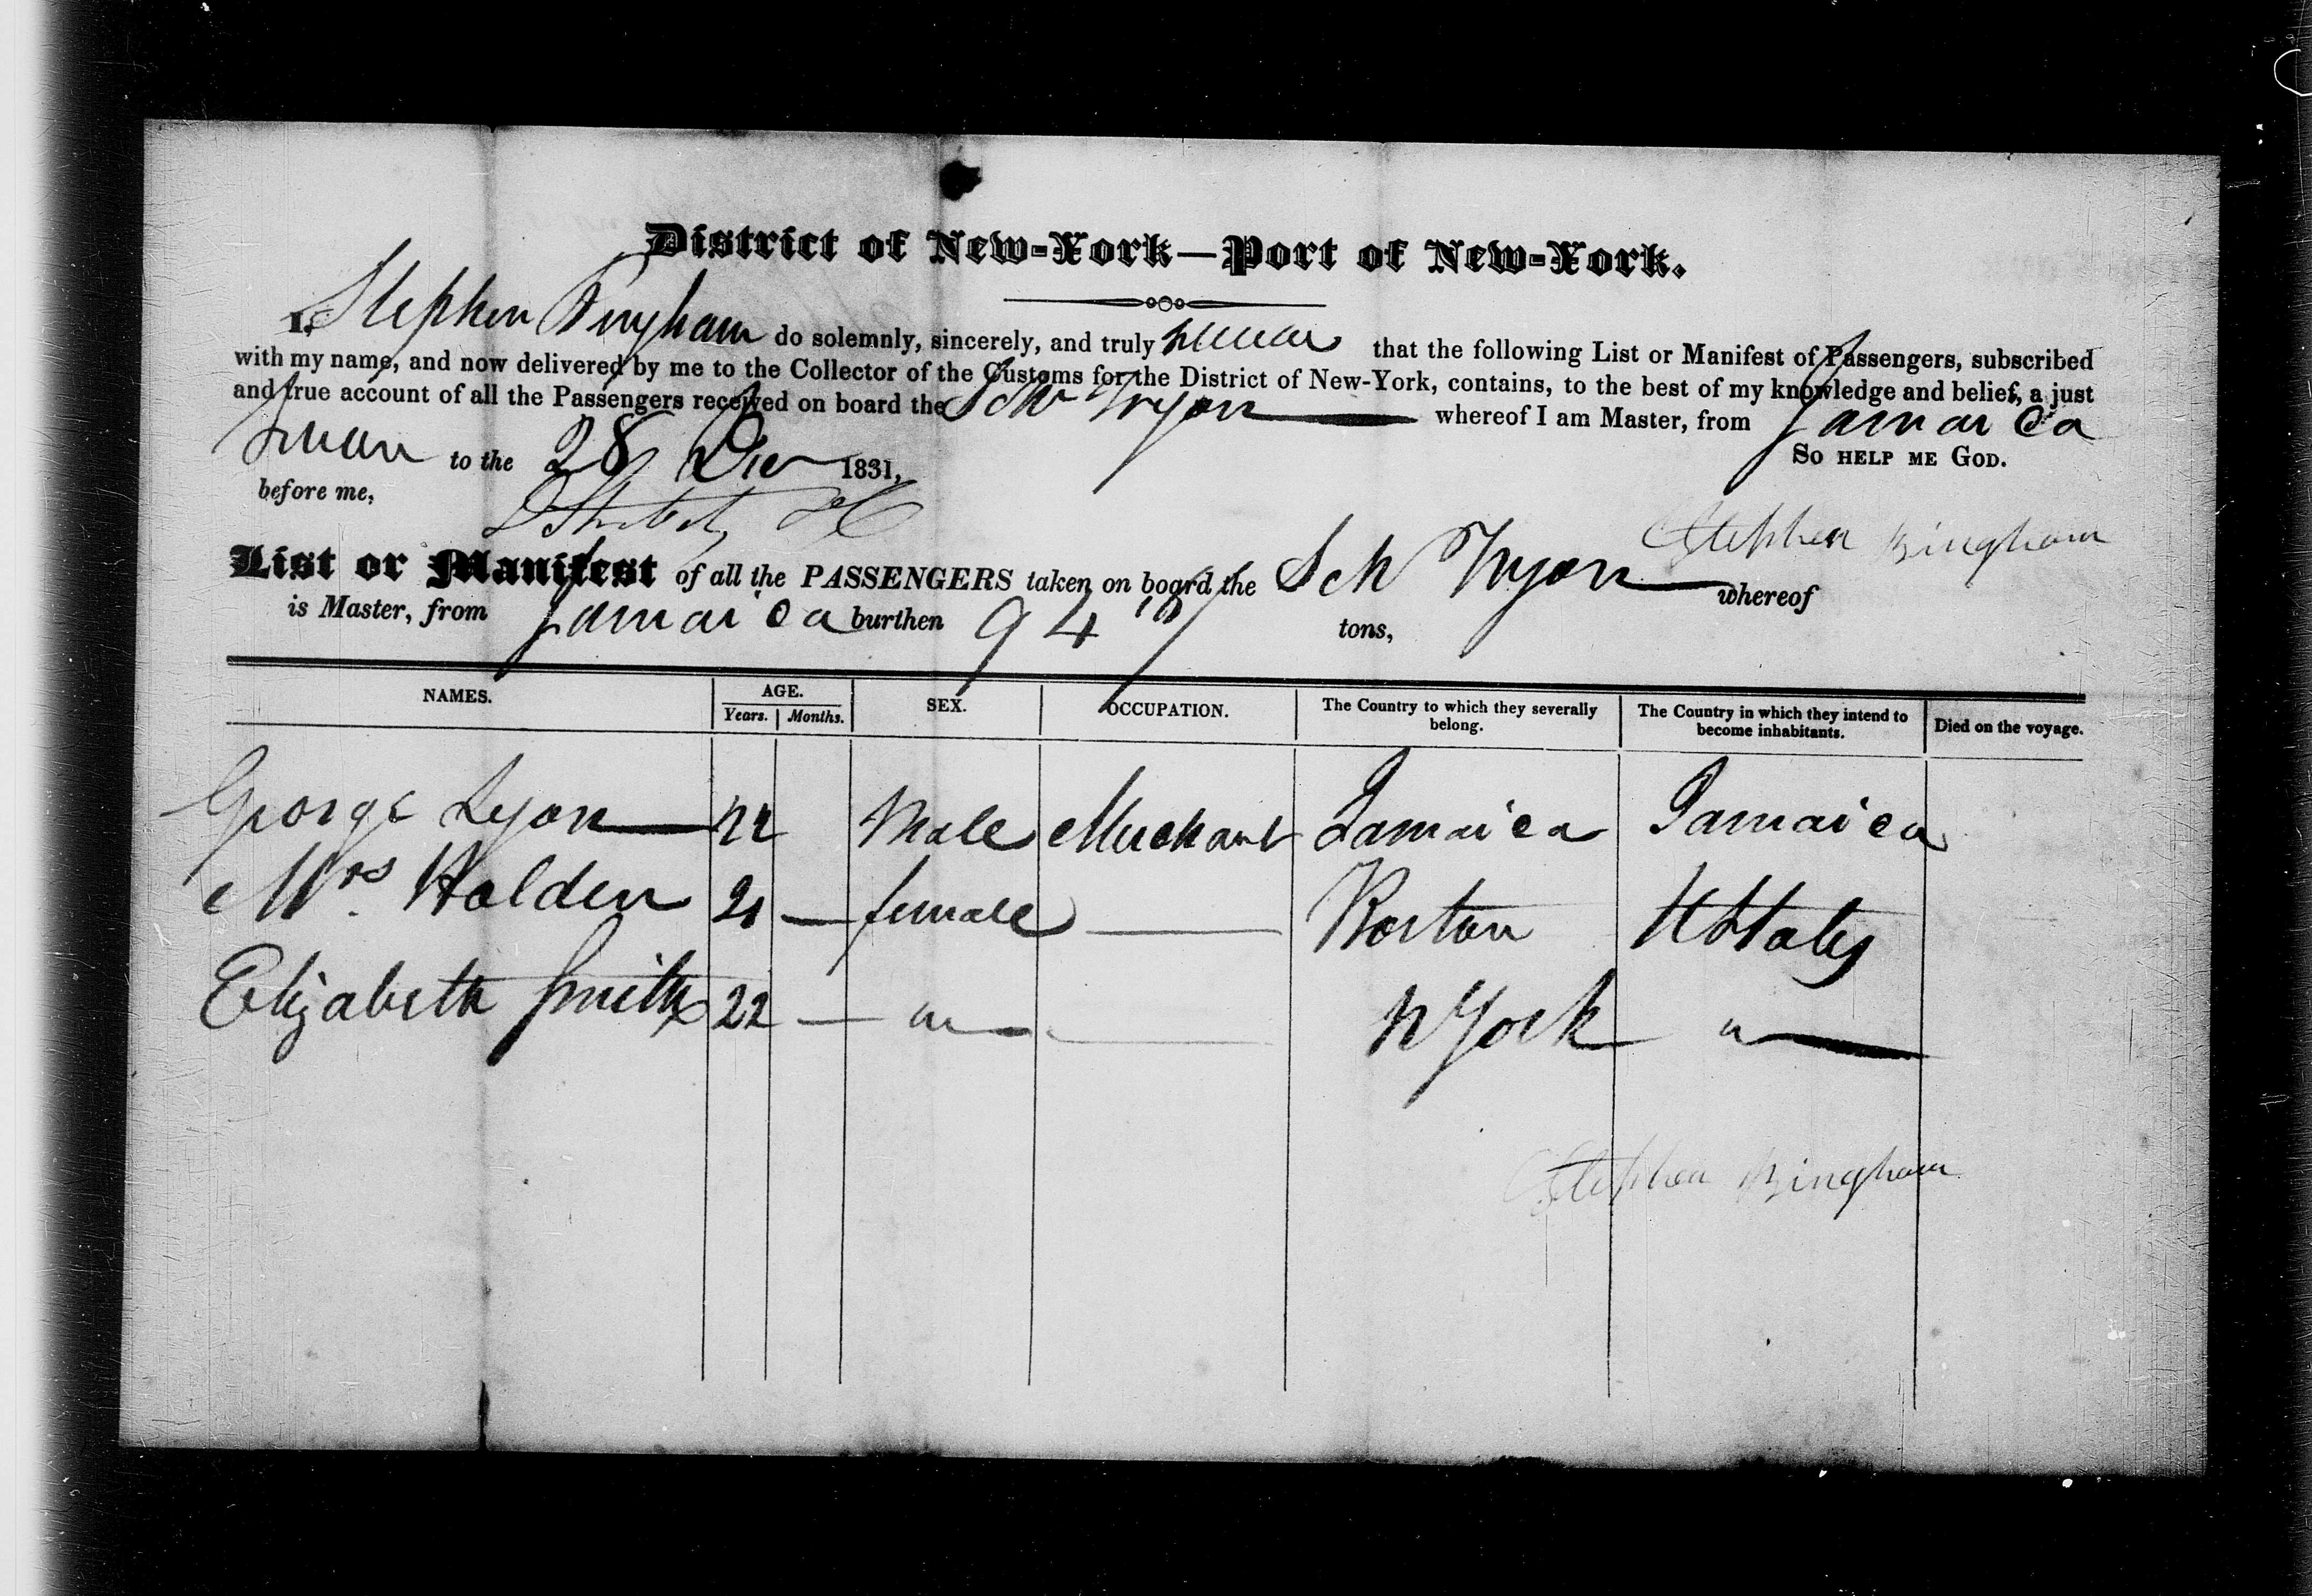 District of New-York—Port of New-York.
I, Stephen Bingham do solemnly, sincerely, and truly swear that the following List or Manifest of Passengers, subscribed
with my name, and now delivered by me to the Collector of the Customs for the District of New-York, contains, to the best of my knowledge and belief, a just
and true account of all the Passengers received on board the Schr Tryon whereof I am Master, from Jamaica
Sworn to the 28 Dec 1831,
So help me God.
before me,
Stephen Bingham
List or Manifest of all the PASSENGERS taken on board the Sch Tryon whereof
is Master, from Jamaica burthen 94 tons,
NAMES. AGE. SEX. OCCUPATION. The Country to which they severally belong. The Country in which they intend to become inhabitants. Died on the voyage.
Years. Months.
George Lyon 22 Male Merchant Jamaica Jamaica
Mrs. Holden 21 — female — Boston UStates
Elizabeth Smith 22 — " — N York " —
Stephen Bingham